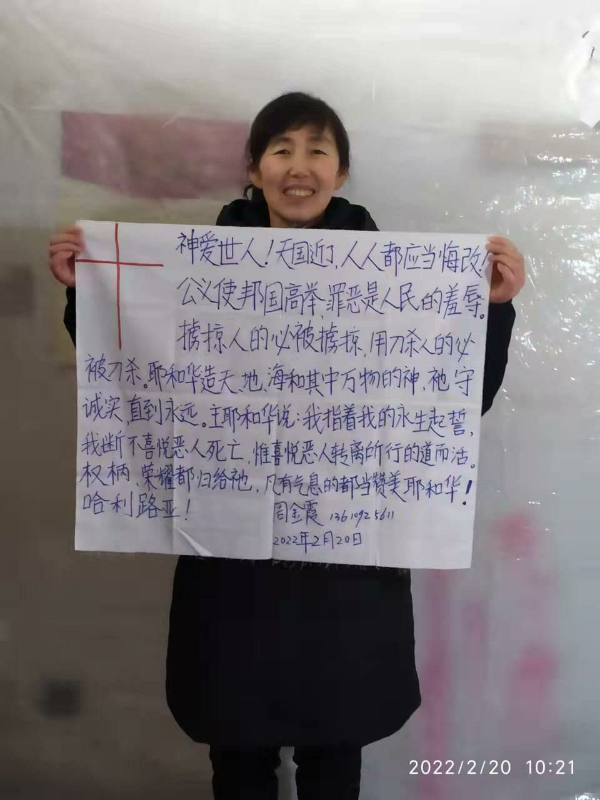 神爱世人！天国近了，人人都应当悔改！
公义使邦国高举，罪恶是人民的羞辱。
掳掠人的必被掳掠，用刀杀人的必
被刀杀。耶和华造天、地、海和其中万物的神，祂守
诚实，直到永远。主耶和华说：我指着我的永生起誓，
我断不喜悦恶人死亡，惟喜悦恶人转离所行的道而活。
权柄、荣耀都归给祂，凡有气息的都当赞美耶和华！
哈利路亚！
周金霞
2022年2月20日
2022/2/20 10:21